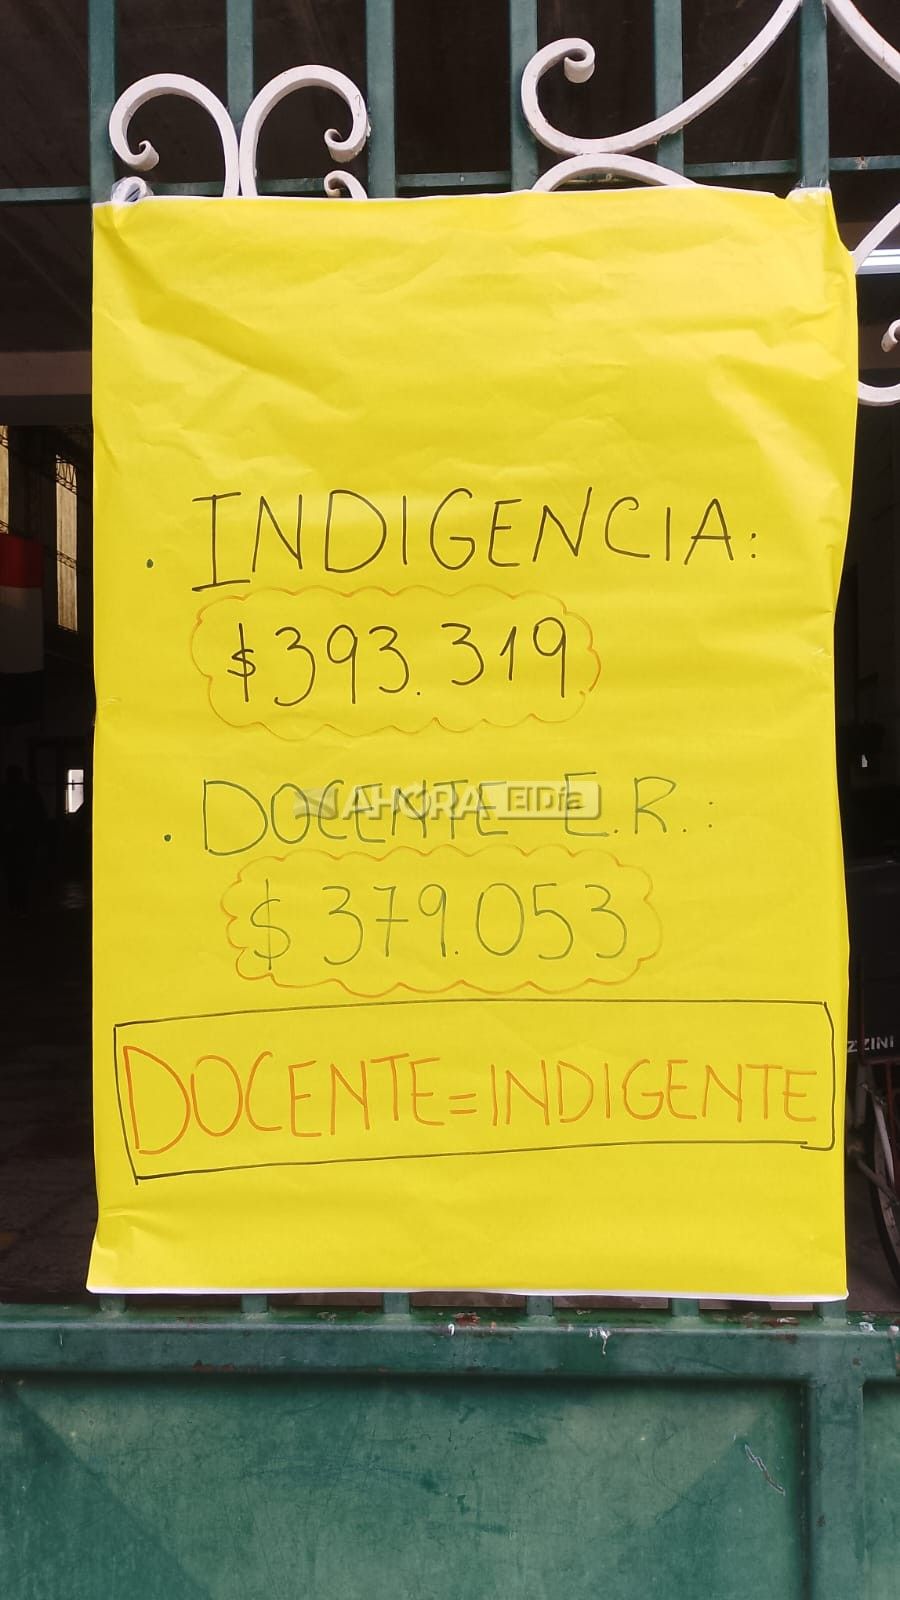 . INDIGENCIA:
$393.319
. DOCENTE E.R.:
AHORA ElDía
$379.053
DOCENTE=INDIGENTE
ZZINI